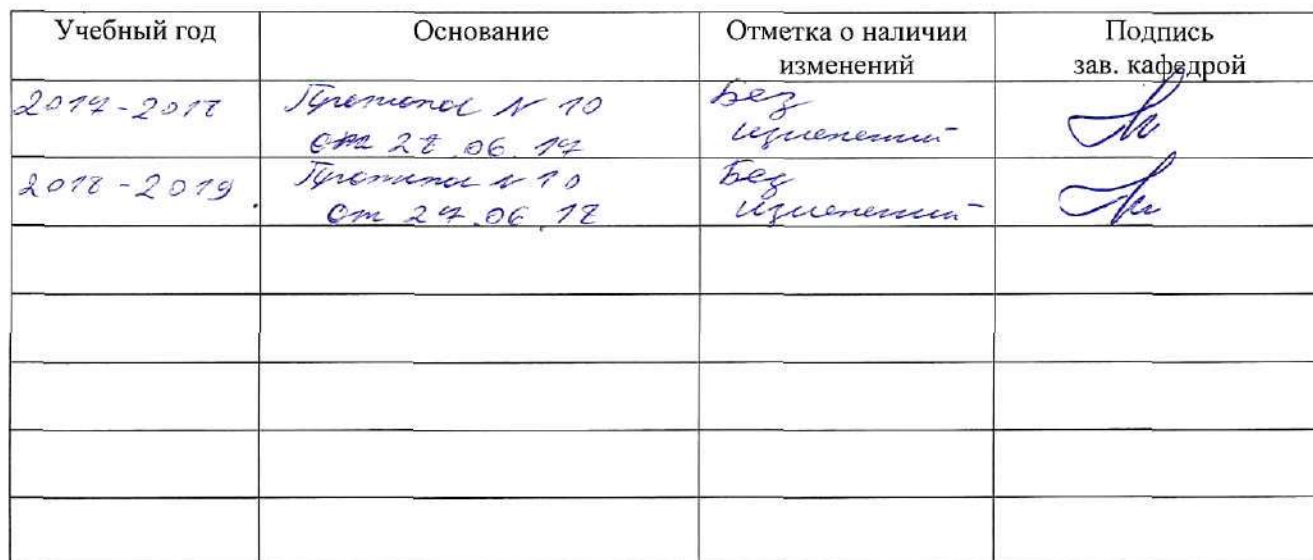 Учебный год Основание Отметка о наличии изменений Подпись зав. кафедрой
2017-2018 Протокол № 10 Без
от 28.06.17 изменений
2018-2019. Протокол № 10 Без
от 27.06.18 изменений